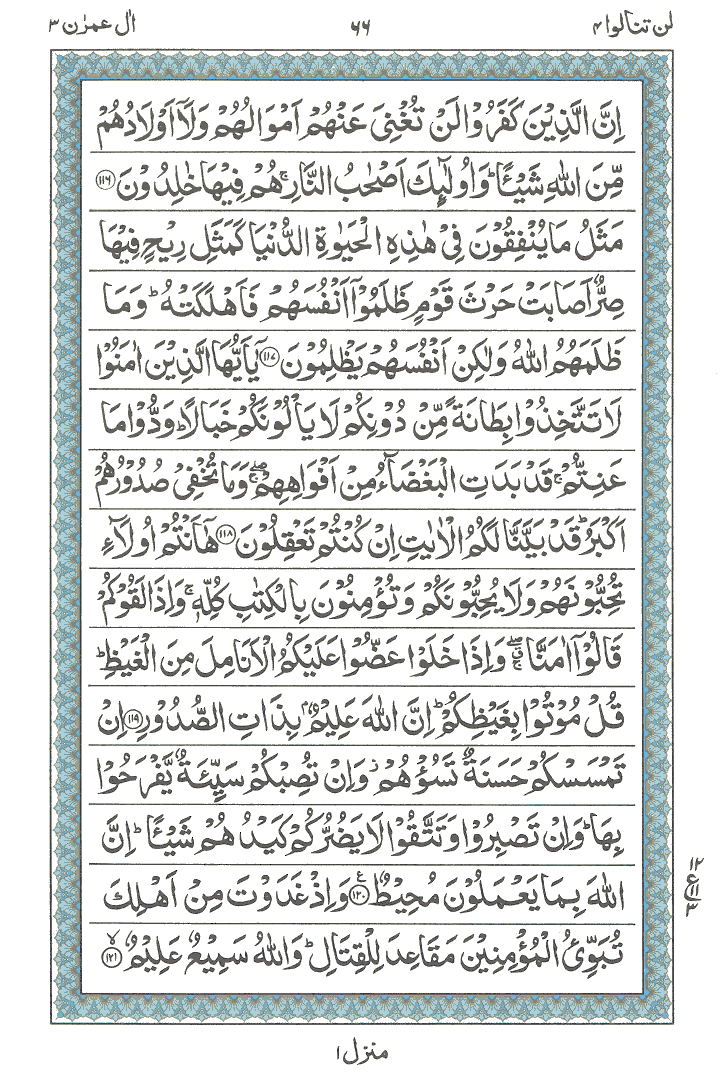 لن تنالوا ۴ ۶۶ اٰل عمرٰن ۳
اِنَّ الَّذِيْنَ كَفَرُوْا لَنْ تُغْنِيَ عَنْهُمْ اَمْوَالُهُمْ وَلَاۤ اَوْلَادُهُمْ
مِّنَ اللّٰهِ شَيْـًٔاؕ وَاُولٰٓئِكَ اَصْحٰبُ النَّارِۚ هُمْ فِيْهَا خٰلِدُوْنَ ۝۱۱۶
مَثَلُ مَا يُنْفِقُوْنَ فِيْ هٰذِهِ الْحَيٰوةِ الدُّنْيَا كَمَثَلِ رِيْحٍ فِيْهَا
صِرٌّ اَصَابَتْ حَرْثَ قَوْمٍ ظَلَمُوْۤا اَنْفُسَهُمْ فَاَهْلَكَتْهُؕ وَمَا
ظَلَمَهُمُ اللّٰهُ وَلٰكِنْ اَنْفُسَهُمْ يَظْلِمُوْنَ ۝۱۱۷ يٰۤاَيُّهَا الَّذِيْنَ اٰمَنُوْا
لَا تَتَّخِذُوْا بِطَانَةً مِّنْ دُوْنِكُمْ لَا يَاْلُوْنَكُمْ خَبَالًاؕ وَدُّوْا مَا
عَنِتُّمْۚ قَدْ بَدَتِ الْبَغْضَآءُ مِنْ اَفْوَاهِهِمْۖۚ وَمَا تُخْفِيْ صُدُوْرُهُمْ
اَكْبَرُؕ قَدْ بَيَّنَّا لَكُمُ الْاٰيٰتِ اِنْ كُنْتُمْ تَعْقِلُوْنَ ۝۱۱۸ هٰۤاَنْتُمْ اُولَآءِ
تُحِبُّوْنَهُمْ وَلَا يُحِبُّوْنَكُمْ وَتُؤْمِنُوْنَ بِالْكِتٰبِ كُلِّهٖۚ وَاِذَا لَقُوْكُمْ
قَالُوْۤا اٰمَنَّاۖۚ وَاِذَا خَلَوْا عَضُّوْا عَلَيْكُمُ الْاَنَامِلَ مِنَ الْغَيْظِؕ
قُلْ مُوْتُوْا بِغَيْظِكُمْؕ اِنَّ اللّٰهَ عَلِيْمٌۢ بِذَاتِ الصُّدُوْرِ ۝۱۱۹ اِنْ
تَمْسَسْكُمْ حَسَنَةٌ تَسُؤْهُمْؗ وَاِنْ تُصِبْكُمْ سَيِّئَةٌ يَّفْرَحُوْا
بِهَاؕ وَاِنْ تَصْبِرُوْا وَتَتَّقُوْا لَا يَضُرُّكُمْ كَيْدُهُمْ شَيْـًٔاؕ اِنَّ
اللّٰهَ بِمَا يَعْمَلُوْنَ مُحِيْطٌ ۝۱۲۰ۧ وَاِذْ غَدَوْتَ مِنْ اَهْلِكَ
تُبَوِّئُ الْمُؤْمِنِيْنَ مَقَاعِدَ لِلْقِتَالِؕ وَاللّٰهُ سَمِيْعٌ عَلِيْمٌ ۝۱۲۱ۙ
۱۲
ع ۱۱
۳
منزل ۱